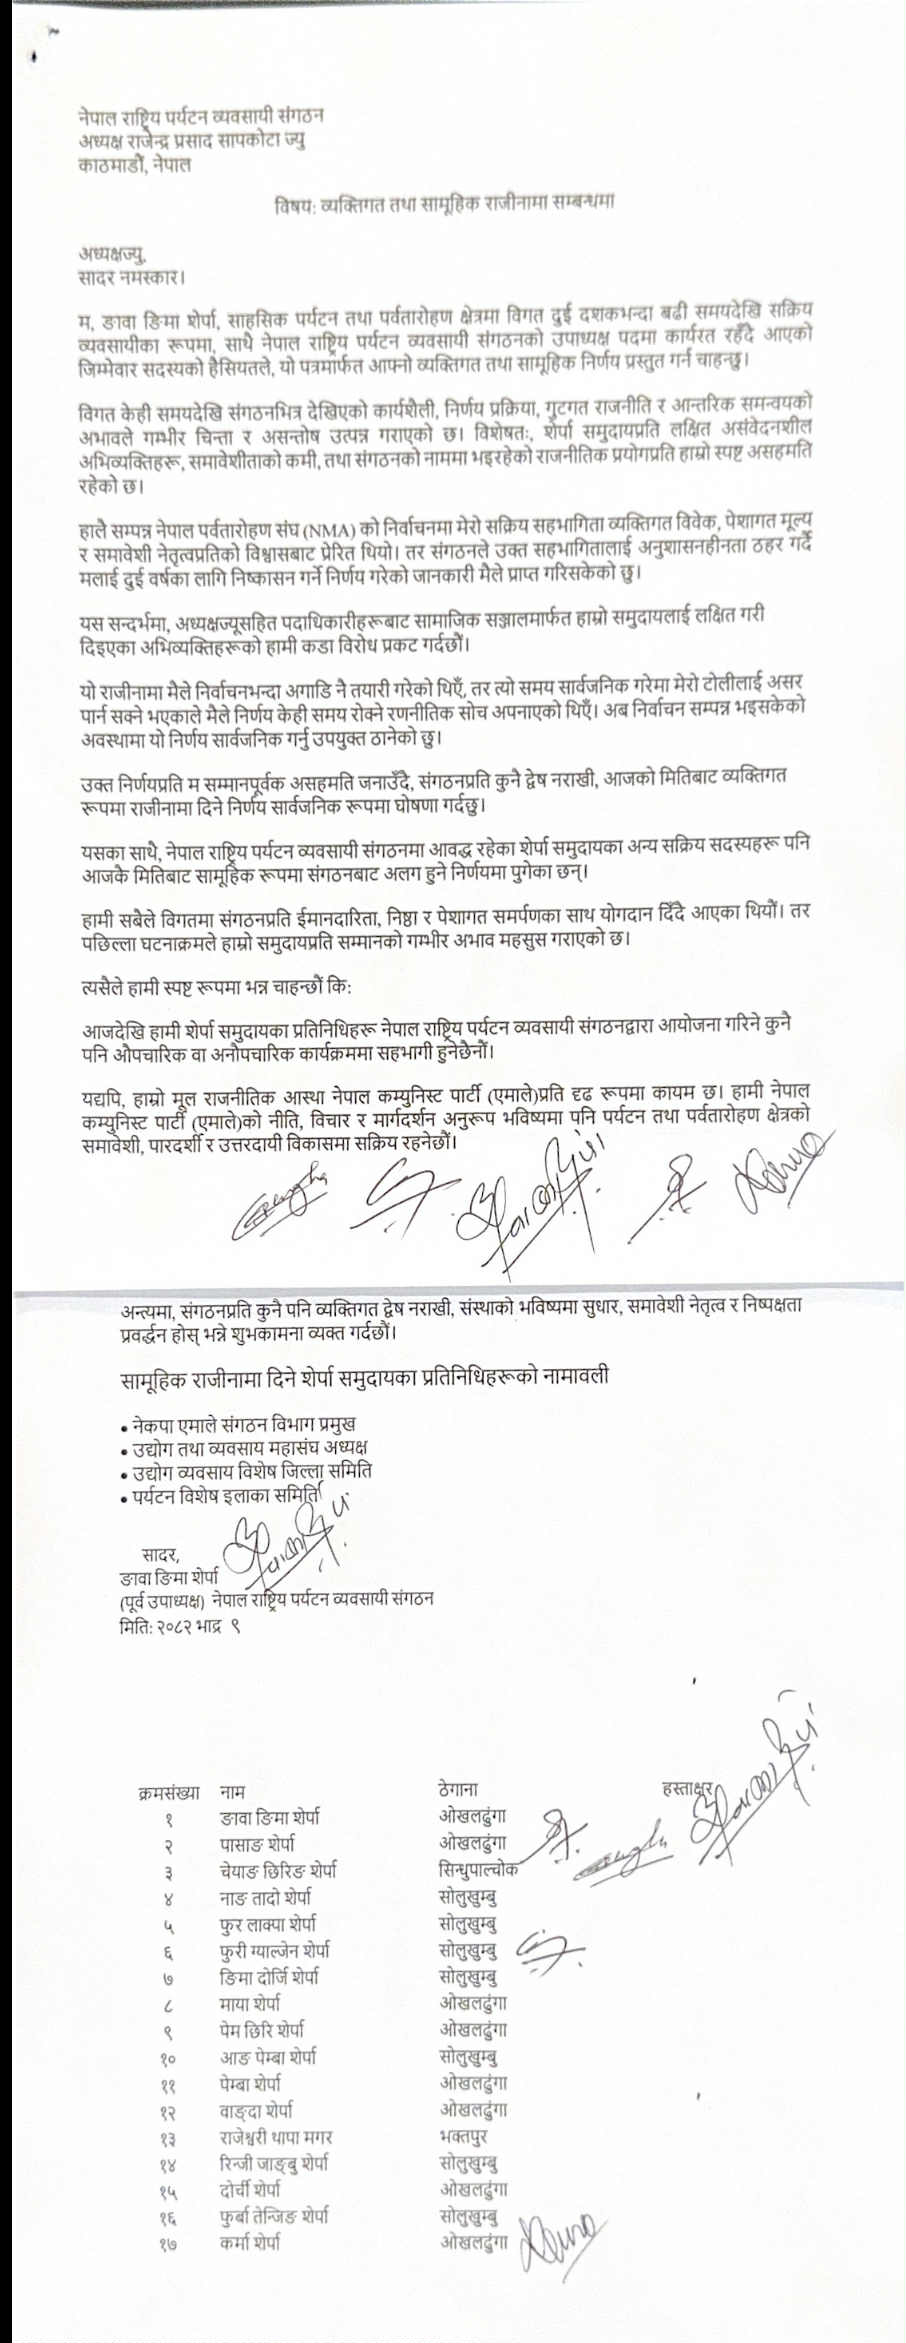 नेपाल राष्ट्रिय पर्यटन व्यवसायी संगठन
अध्यक्ष राजेन्द्र प्रसाद सापकोटा ज्यु
काठमाडौं, नेपाल
विषय: व्यक्तिगत तथा सामूहिक राजीनामा सम्बन्धमा
अध्यक्षज्यु,
सादर नमस्कार।
म, ङावा ङिमा शेर्पा, साहसिक पर्यटन तथा पर्वतारोहण क्षेत्रमा विगत दुई दशकभन्दा बढी समयदेखि सक्रिय
व्यवसायीका रूपमा, साथै नेपाल राष्ट्रिय पर्यटन व्यवसायी संगठनको उपाध्यक्ष पदमा कार्यरत रहँदै आएको
जिम्मेवार सदस्यको हैसियतले, यो पत्रमार्फत आफ्नो व्यक्तिगत तथा सामूहिक निर्णय प्रस्तुत गर्न चाहन्छु।
विगत केही समयदेखि संगठनभित्र देखिएको कार्यशैली, निर्णय प्रक्रिया, गुटगत राजनीति र आन्तरिक समन्वयको
अभावले गम्भीर चिन्ता र असन्तोष उत्पन्न गराएको छ। विशेषतः, शेर्पा समुदायप्रति लक्षित असंवेदनशील
अभिव्यक्तिहरू, समावेशीताको कमी, तथा संगठनको नाममा भइरहेको राजनीतिक प्रयोगप्रति हाम्रो स्पष्ट असहमति
रहेको छ।
हालै सम्पन्न नेपाल पर्वतारोहण संघ (NMA) को निर्वाचनमा मेरो सक्रिय सहभागिता व्यक्तिगत विवेक, पेशागत मूल्य
र समावेशी नेतृत्वप्रतिको विश्वासबाट प्रेरित थियो। तर संगठनले उक्त सहभागितालाई अनुशासनहीनता ठहर गर्दै
मलाई दुई वर्षका लागि निष्कासन गर्ने निर्णय गरेको जानकारी मैले प्राप्त गरिसकेको छु।
यस सन्दर्भमा, अध्यक्षज्यूसहित पदाधिकारीहरूबाट सामाजिक सञ्जालमार्फत हाम्रो समुदायलाई लक्षित गरी
दिइएका अभिव्यक्तिहरूको हामी कडा विरोध प्रकट गर्दछौं।
यो राजीनामा मैले निर्वाचनभन्दा अगाडि नै तयारी गरेको थिएँ, तर त्यो समय सार्वजनिक गरेमा मेरो टोलीलाई असर
पार्न सक्ने भएकाले मैले निर्णय केही समय रोक्ने रणनीतिक सोच अपनाएको थिएँ। अब निर्वाचन सम्पन्न भइसकेको
अवस्थामा यो निर्णय सार्वजनिक गर्नु उपयुक्त ठानेको छु।
उक्त निर्णयप्रति म सम्मानपूर्वक असहमति जनाउँदै, संगठनप्रति कुनै द्वेष नराखी, आजको मितिबाट व्यक्तिगत
रूपमा राजीनामा दिने निर्णय सार्वजनिक रूपमा घोषणा गर्दछु।
यसका साथै, नेपाल राष्ट्रिय पर्यटन व्यवसायी संगठनमा आवद्ध रहेका शेर्पा समुदायका अन्य सक्रिय सदस्यहरू पनि
आजकै मितिबाट सामूहिक रूपमा संगठनबाट अलग हुने निर्णयमा पुगेका छन्।
हामी सबैले विगतमा संगठनप्रति ईमानदारिता, निष्ठा र पेशागत समर्पणका साथ योगदान दिँदै आएका थियौं। तर
पछिल्ला घटनाक्रमले हाम्रो समुदायप्रति सम्मानको गम्भीर अभाव महसुस गराएको छ।
त्यसैले हामी स्पष्ट रूपमा भन्न चाहन्छौं कि:
आजदेखि हामी शेर्पा समुदायका प्रतिनिधिहरू नेपाल राष्ट्रिय पर्यटन व्यवसायी संगठनद्वारा आयोजना गरिने कुनै
पनि औपचारिक वा अनौपचारिक कार्यक्रममा सहभागी हुनेछैनौं।
यद्यपि, हाम्रो मूल राजनीतिक आस्था नेपाल कम्युनिस्ट पार्टी (एमाले)प्रति दृढ रूपमा कायम छ। हामी नेपाल
कम्युनिस्ट पार्टी (एमाले)को नीति, विचार र मार्गदर्शन अनुरूप भविष्यमा पनि पर्यटन तथा पर्वतारोहण क्षेत्रको
समावेशी, पारदर्शी र उत्तरदायी विकासमा सक्रिय रहनेछौं।
अन्त्यमा, संगठनप्रति कुनै पनि व्यक्तिगत द्वेष नराखी, संस्थाको भविष्यमा सुधार, समावेशी नेतृत्व र निष्पक्षता
प्रवर्द्धन होस् भन्ने शुभकामना व्यक्त गर्दछौं।
सामूहिक राजीनामा दिने शेर्पा समुदायका प्रतिनिधिहरूको नामावली
• नेकपा एमाले संगठन विभाग प्रमुख
• उद्योग तथा व्यवसाय महासंघ अध्यक्ष
• उद्योग व्यवसाय विशेष जिल्ला समिति
• पर्यटन विशेष इलाका समिति
सादर,
ङावा ङिमा शेर्पा
(पूर्व उपाध्यक्ष) नेपाल राष्ट्रिय पर्यटन व्यवसायी संगठन
मिति: २०८२ भाद्र ९
क्रमसंख्या नाम ठेगाना हस्ताक्षर
१ ङावा ङिमा शेर्पा ओखलढुंगा
२ पासाङ शेर्पा ओखलढुंगा
३ चेयाङ छिरिङ शेर्पा सिन्धुपाल्चोक
४ नाङ तादो शेर्पा सोलुखुम्बु
५ फुर लाक्पा शेर्पा सोलुखुम्बु
६ फुरी ग्याल्जेन शेर्पा सोलुखुम्बु
७ ङिमा दोर्जि शेर्पा सोलुखुम्बु
८ माया शेर्पा ओखलढुंगा
९ पेम छिरि शेर्पा ओखलढुंगा
१० आङ पेम्बा शेर्पा सोलुखुम्बु
११ पेम्बा शेर्पा ओखलढुंगा
१२ वाङ्दा शेर्पा ओखलढुंगा
१३ राजेश्वरी थापा मगर भक्तपुर
१४ रिन्जी जाङ्बु शेर्पा सोलुखुम्बु
१५ दोर्ची शेर्पा ओखलढुंगा
१६ फुर्बा तेन्जिङ शेर्पा सोलुखुम्बु
१७ कर्मा शेर्पा ओखलढुंगा